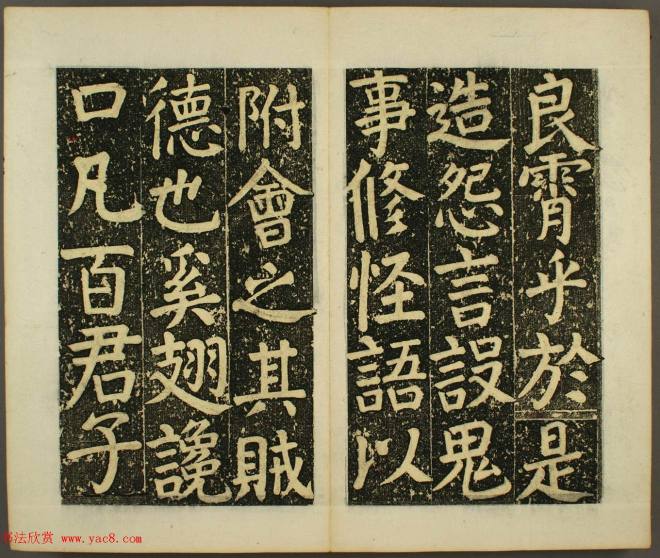 良霄乎於是
造怨言設鬼
事修怪語以
附會之其賊
德也奚翅讒
口凡百君子
书法欣赏 www.yac8.com